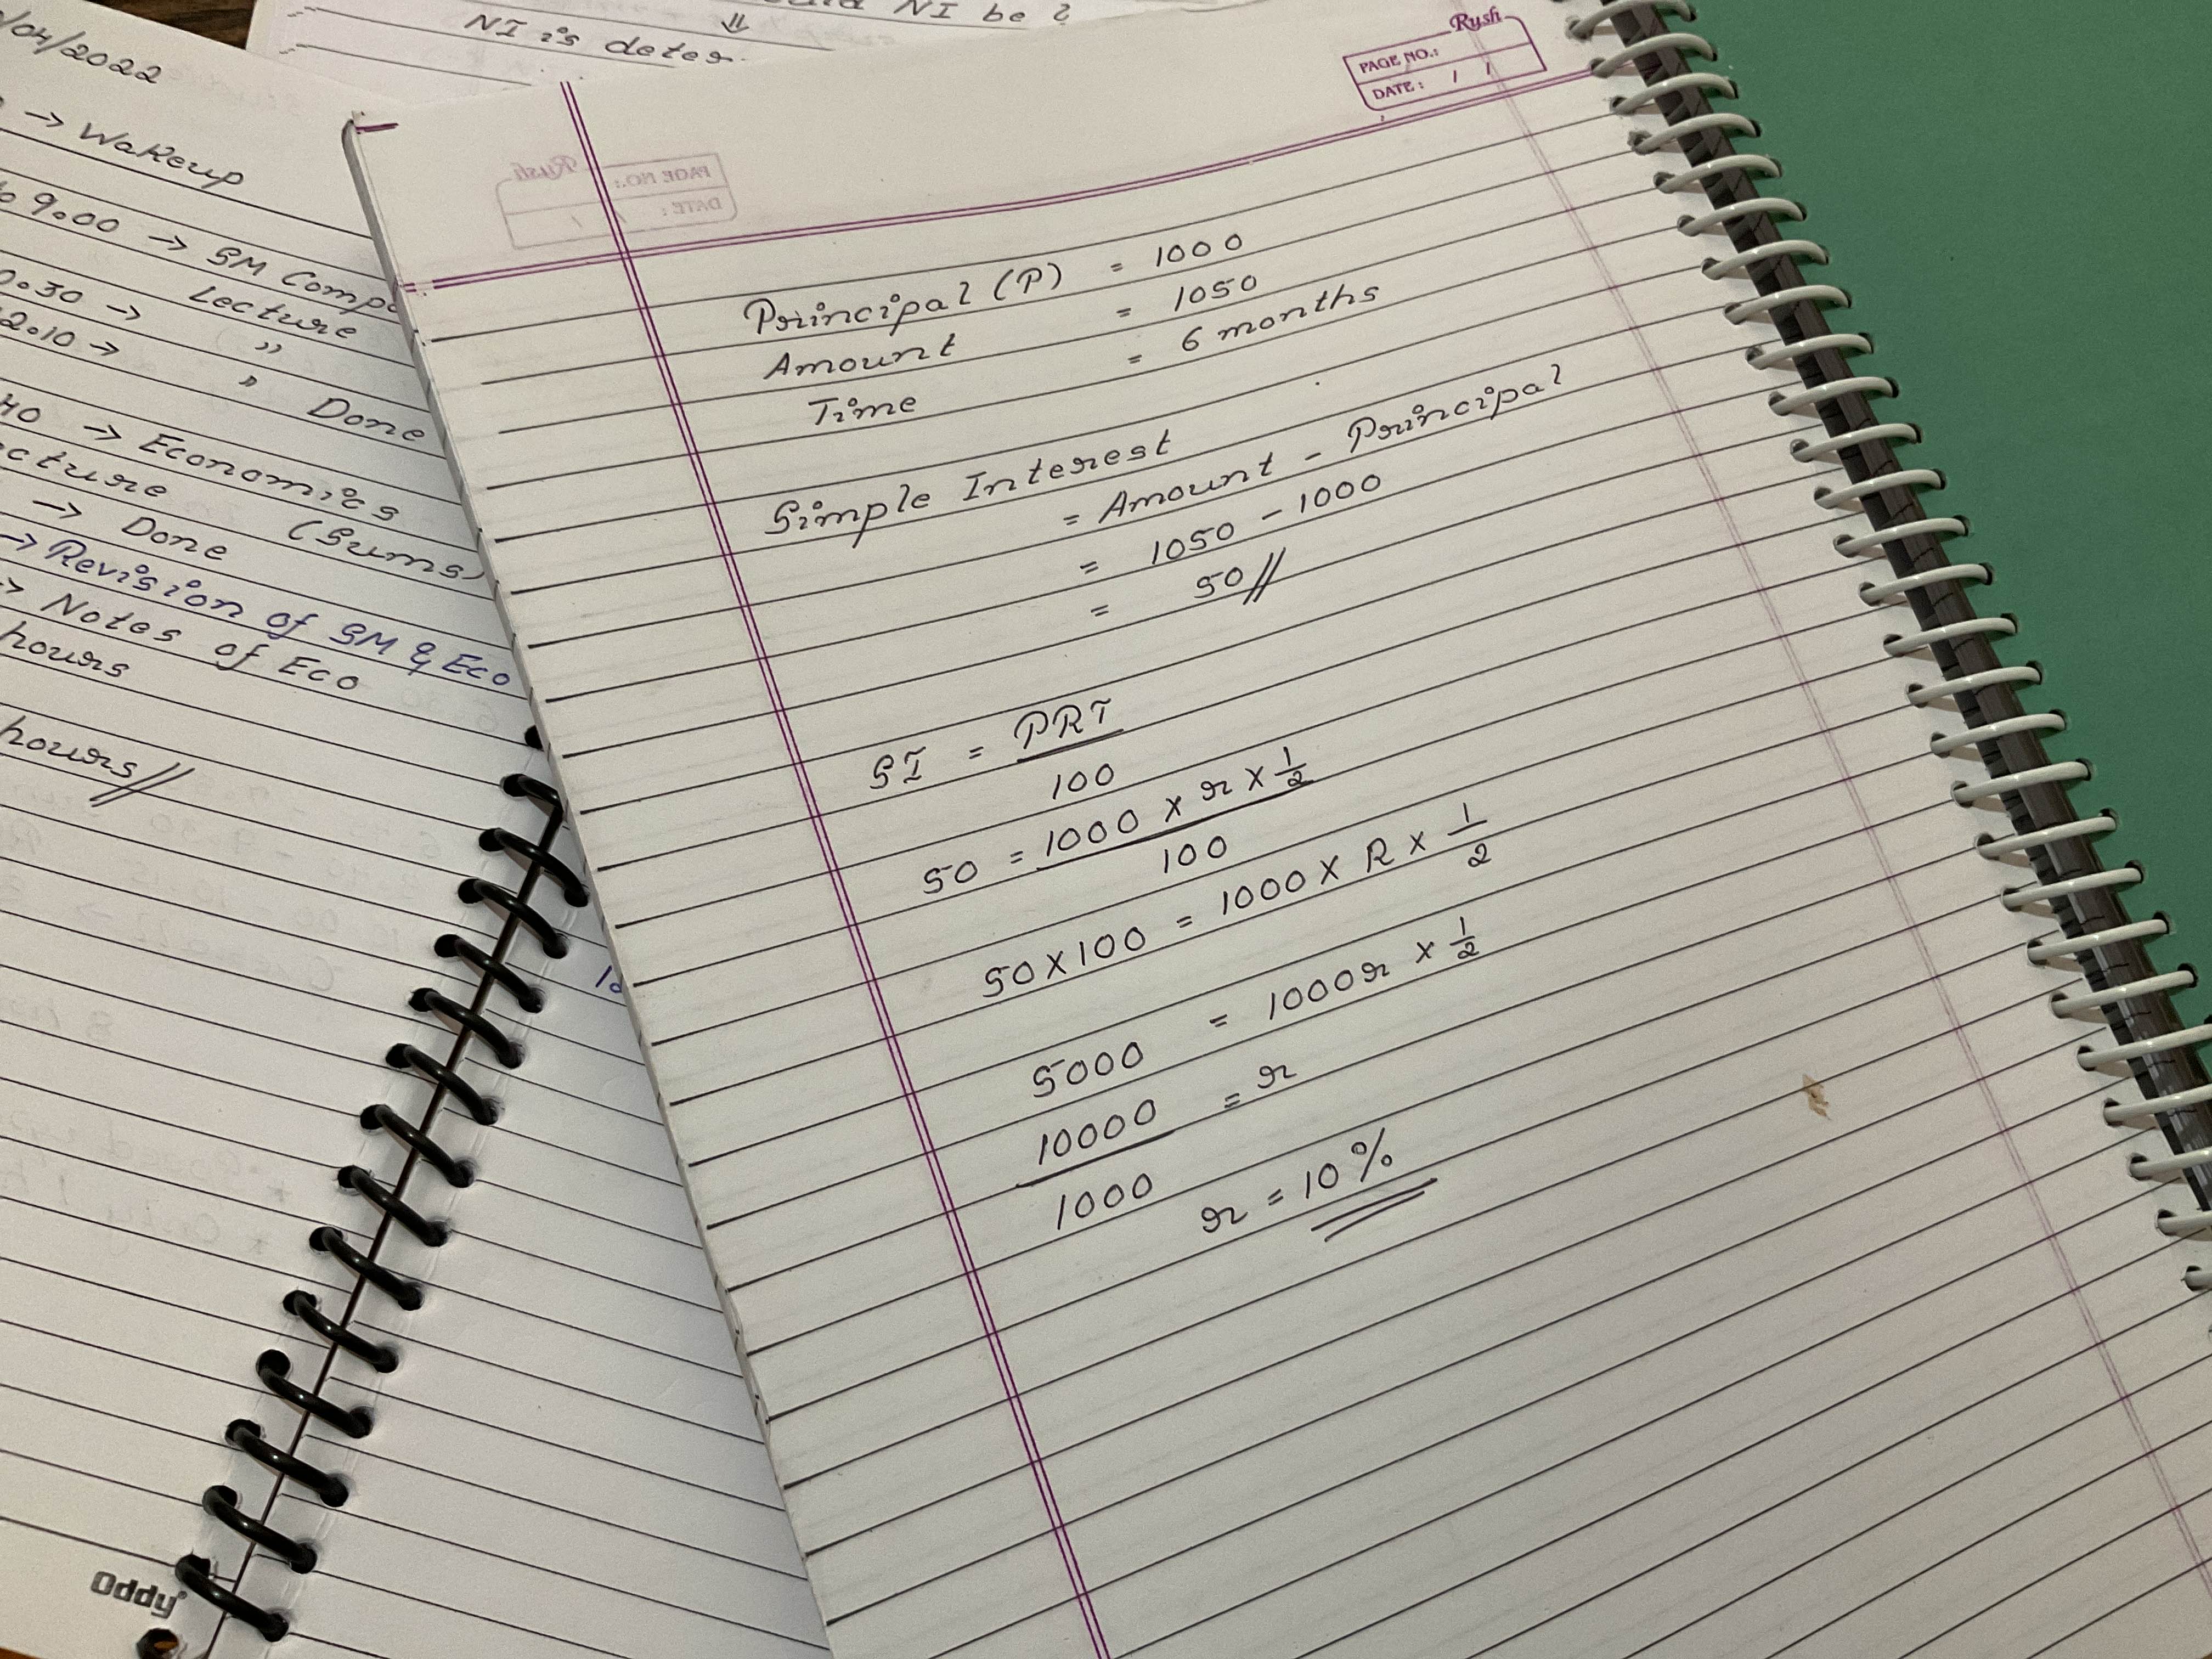 /04/2022
→ Wakeup
9.00 → SM Comp
Lecture
0.30 → "
2.10 → "
Done
40 → Economics
cture (Sums)
→ Done
→ Revision of SM & Eco
→ Notes of Eco
hours
hours//
Oddy
NI be?
⇓
NI is deter
Rush
PAGE NO.:
DATE: / /
Principal (P) = 1000
Amount = 1050
Time = 6 months
Simple Interest
= Amount - Principal
= 1050 - 1000
= 50//
SI = PRT
100
50 = 1000 x r x 1/2
100
50 x 100 = 1000 x R x 1/2
5000 = 1000r x 1/2
10000 = r
1000
r = 10%